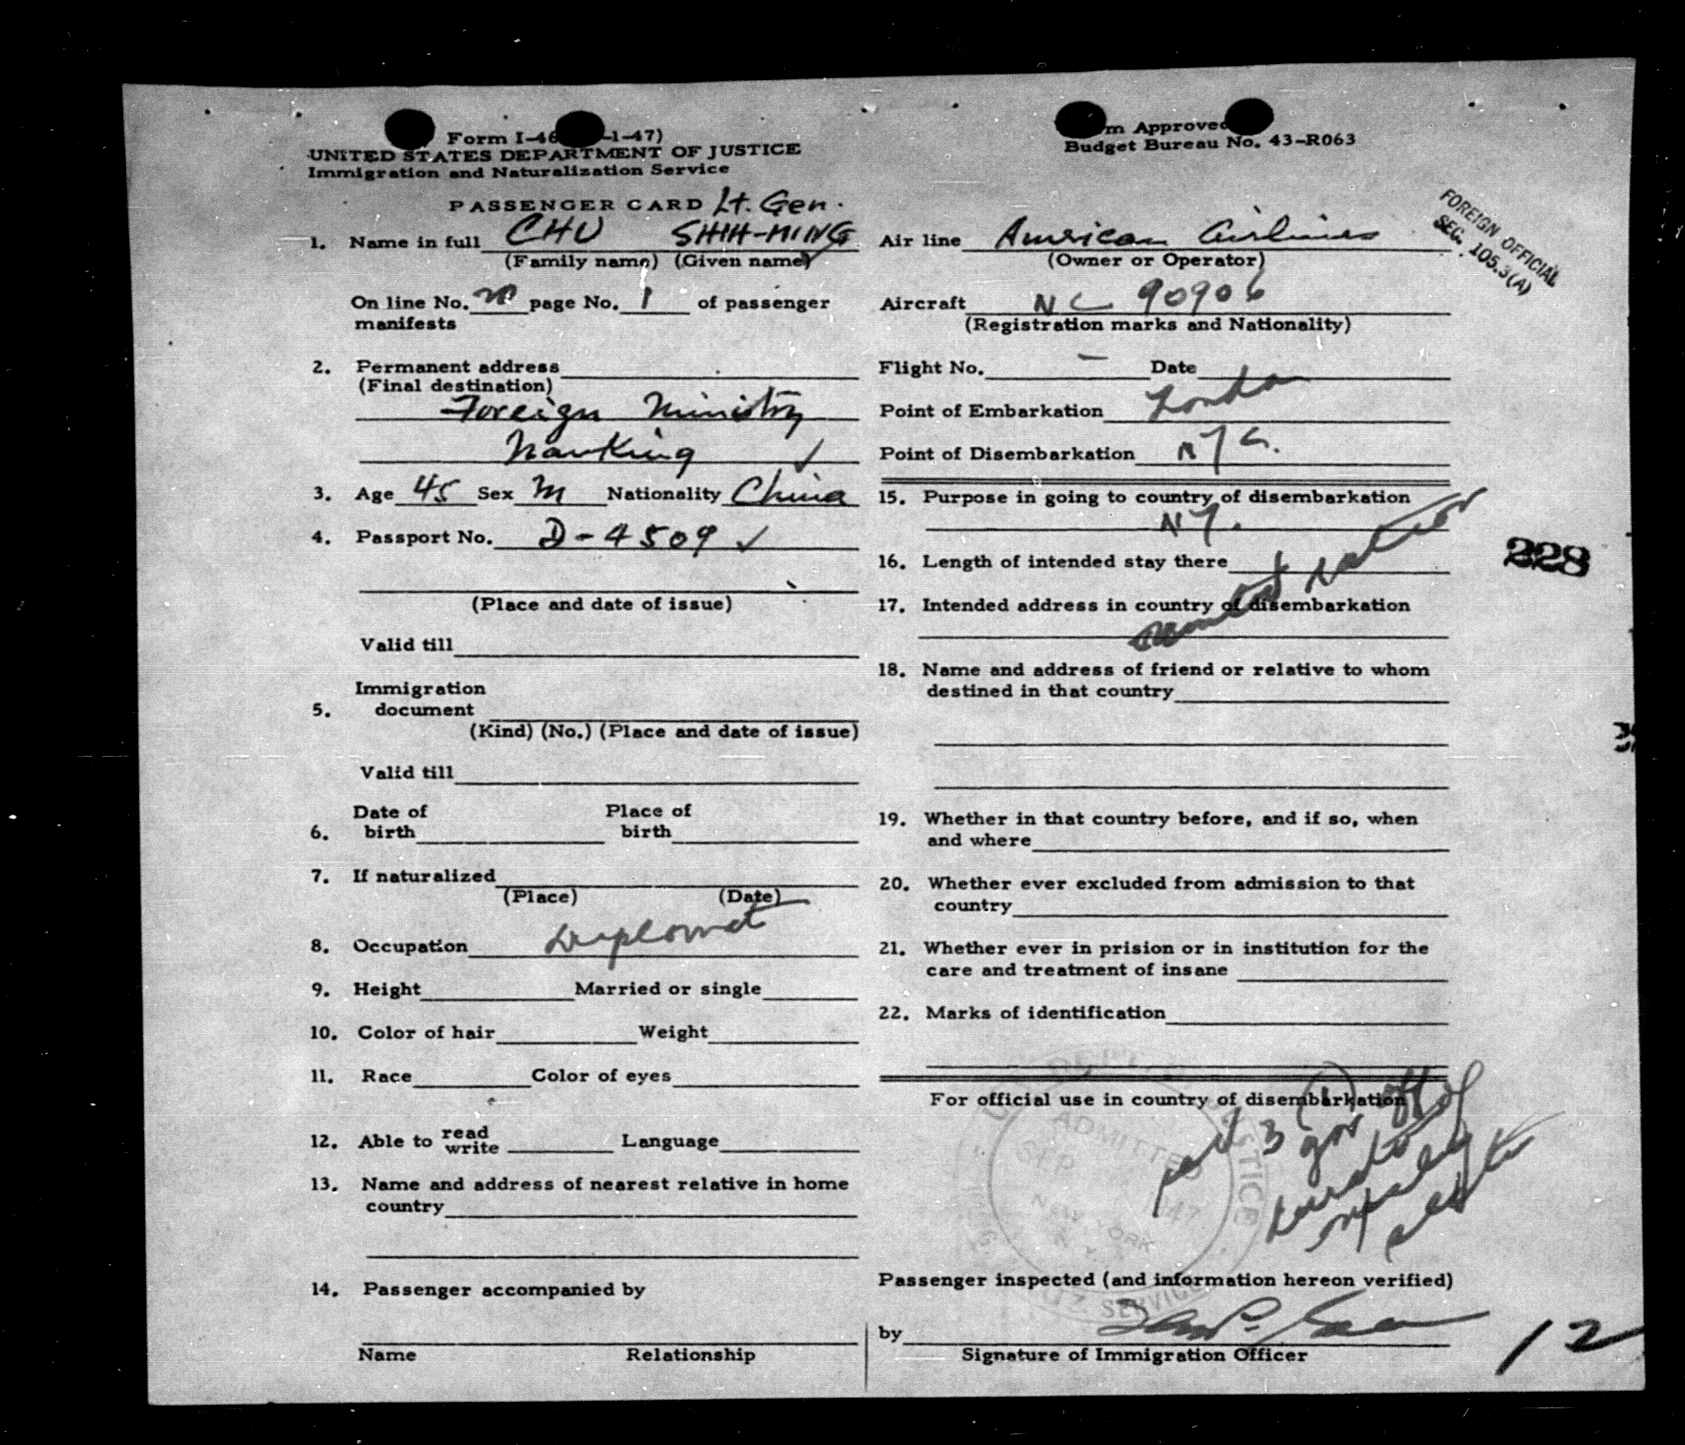 Form I-46 -1-47)
UNITED STATES DEPARTMENT OF JUSTICE
Immigration and Naturalization Service
PASSENGER CARD Lt. Gen.
1. Name in full CHU SHIH-MING
(Family name) (Given name)
On line No. page No. 1 of passenger
manifests
2. Permanent address
(Final destination)
Foreign Ministry
Nanking ✓
3. Age 45 Sex M Nationality China
4. Passport No. D-4509 ✓
(Place and date of issue)
Valid till
Immigration
5. document
(Kind) (No.) (Place and date of issue)
Valid till
Date of Place of
6. birth birth
7. If naturalized
(Place) (Date)
8. Occupation Diplomat
9. Height Married or single
10. Color of hair Weight
11. Race Color of eyes
12. Able to read write Language
13. Name and address of nearest relative in home
country
14. Passenger accompanied by
Name Relationship
m Approved
Budget Bureau No. 43-R063
FOREIGN OFFICIAL
SEC. 105.3(A)
Air line American Airlines
(Owner or Operator)
Aircraft NC 90906
(Registration marks and Nationality)
Flight No. — Date
Point of Embarkation London
Point of Disembarkation NYC.
15. Purpose in going to country of disembarkation
NY.
16. Length of intended stay there
17. Intended address in country of disembarkation
18. Name and address of friend or relative to whom
destined in that country
19. Whether in that country before, and if so, when
and where
20. Whether ever excluded from admission to that
country
21. Whether ever in prision or in institution for the
care and treatment of insane
22. Marks of identification
For official use in country of disembarkation
ADMITTED
SEP
NEW YORK
N. Y.
Passenger inspected (and information hereon verified)
by
Signature of Immigration Officer
228
12